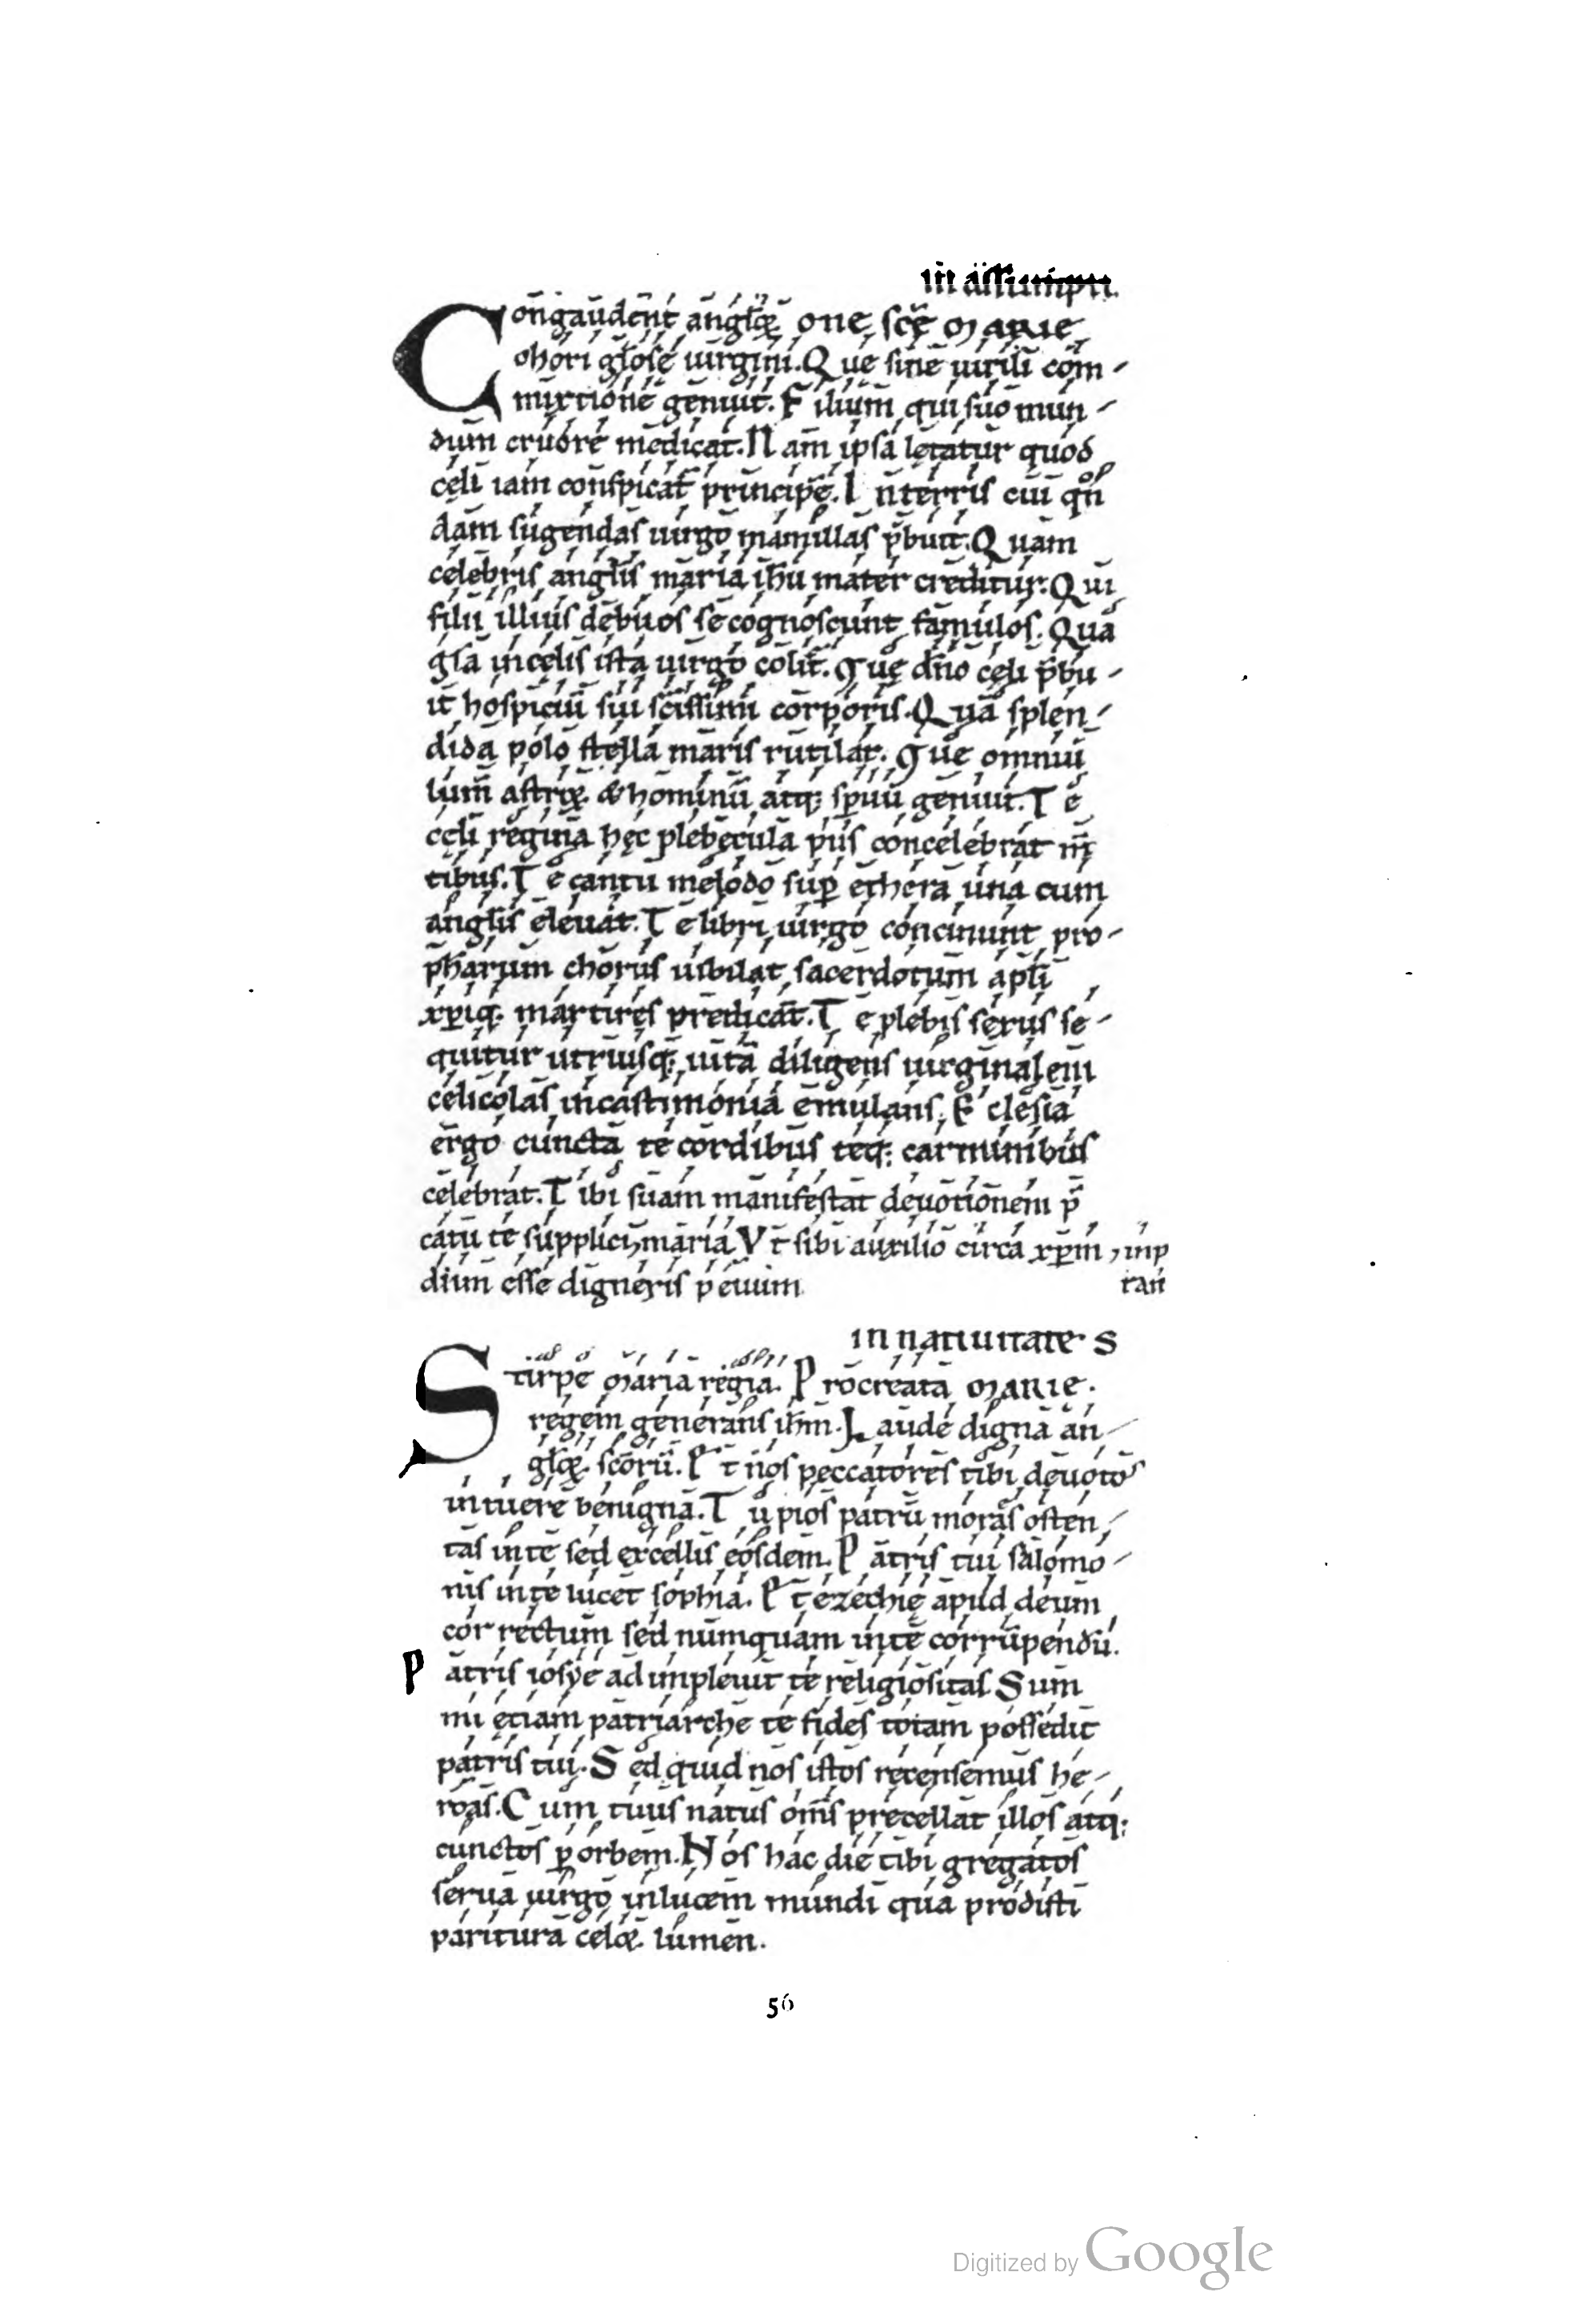 in assumpti
Congaudent anglꝝ one scę Marie
chori glose uirgini. Que sine uirili com-
mixtione genuit. Filium qui suo mun-
dum cruore medicat. Nam ipsa lętatur quod
cęli iam conspicat̄ principē. Interris cui qn̄
dam sugendas uirgo mamillas p̄buit. Quam
celebris anglis maria ihu mater creditur. Qui
filii illius debitos se cognoscunt famulos. Qua
gła incęlis ista uirgo colit̄. Quę dño cęli p̄bu-
it hospiciū sui scissimi corporis. Quā splen-
dida polo stella maris rutilat. Quę omniū
lum̄ astrꝝ & hominū atq; spirituū genuit. Te
cęli regina hęc plebecula piis concelebrat m̄
tibus. Te cantu melodo sup ęthera una cum
anglis eleuat. Te libri uirgo concinunt pro-
pharum chorus iubilat sacerdotum apłi
xp̄iq; martires predicāt. Te plebis sexus se-
quitur utriusq; uitā diligens uirginalem
celicolas incastimonia emulans. Ęclesia
ergo cuncta te cordibus teq; carminibus
celebrat. Tibi suam manifestat deuotionem p̄
catu te supplici maria Ut sibi auxilio circa xp̄m inp
dium esse digneris p̄ euum tan
in natiuitate S
Stirpe Maria regia. Procreata Marie.
regem generans ihm. Laude digna an-
glꝝ scorū. Et nos peccatores tibi deuotos
intuere benigna. Tu pios patrū mores osten-
tas inte sed excellis eosdem. Patris tui salomo-
nis inte lucet sophia. Et ezechię apud deum
cor rectum sed numquam inte corrūpendū.
Patris iosye adimpleuit te religiositas Sum
mi etiam patriarche te fides totam possedit
patris tui. Sed quid nos istos recensemus he-
roas. Cum tuus natus om̄s precellat illos atq;
cunctos p orbem. Nos hac die tibi gregatos
serua uirgo inlucem mundi qua prodisti
paritura celꝝ lumen.
56
Digitized by Google